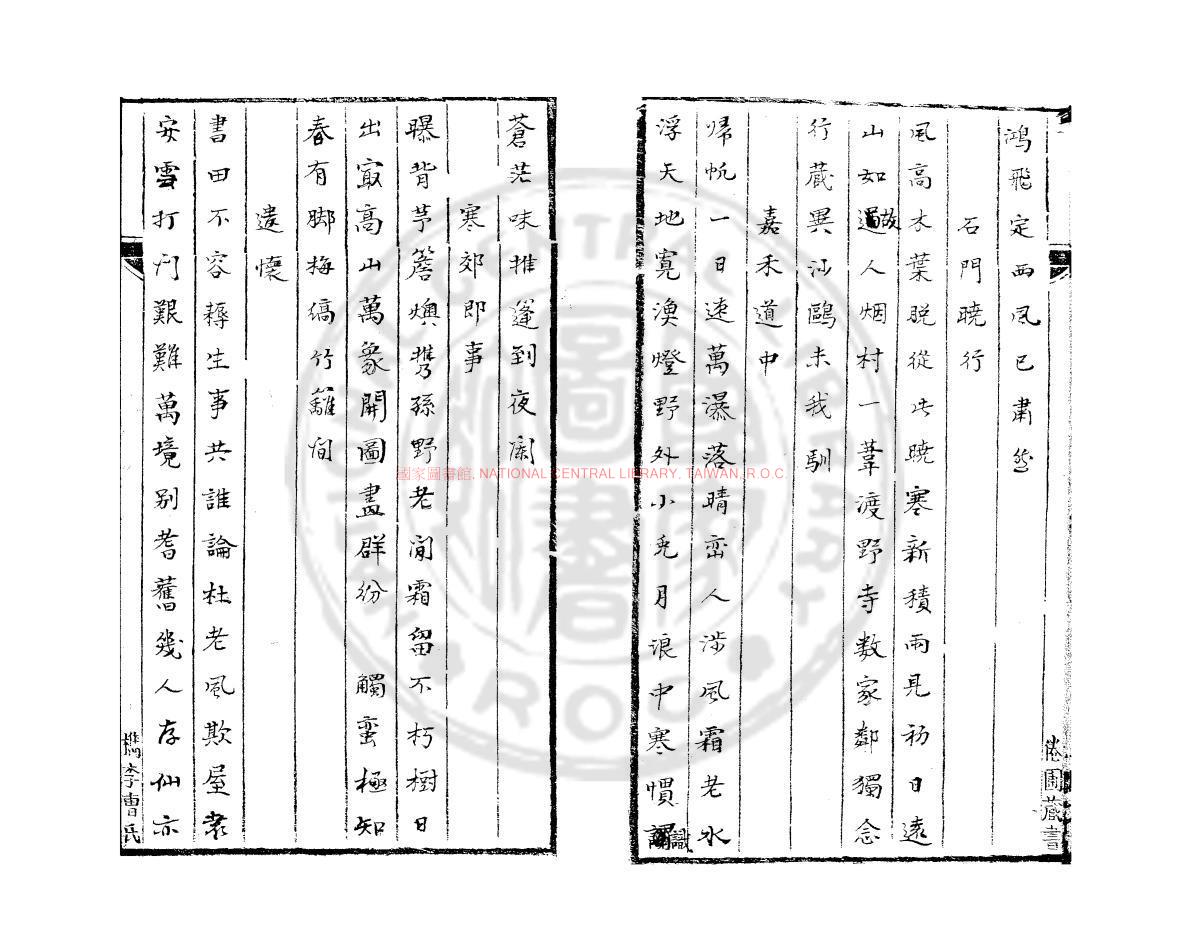 鴻飛定西风已肅然
石門曉行
风高木葉脫從此曉寒新積雨見初日遠
山如故人烟村一葦渡野寺数家鄰獨念
行藏異沙鷗未我馴
嘉禾道中
帰帆一日速萬瀑落晴峦人涉风霜老水
浮天地寛漁燈野外小兎月浪中寒慣識
倦圃蔵書
蒼茫味推篷到夜闌
寒郊即事
曝背茅簷燠携孫野老閒霜留不朽樹日
出寂高山萬象開圖畫群紛觸蛮極知
春有脚梅縞竹籬间
遣懷
書田不容耨生事共誰論杜老风欺屋袁
安雪打门艱難萬境别耆舊幾人存仙亦
檇李曹氏
國家圖書館, NATIONAL CENTRAL LIBRARY, TAIWAN, R.O.C.
NATIONAL CENTRAL LIBRARY
TAIWAN R.O.C.